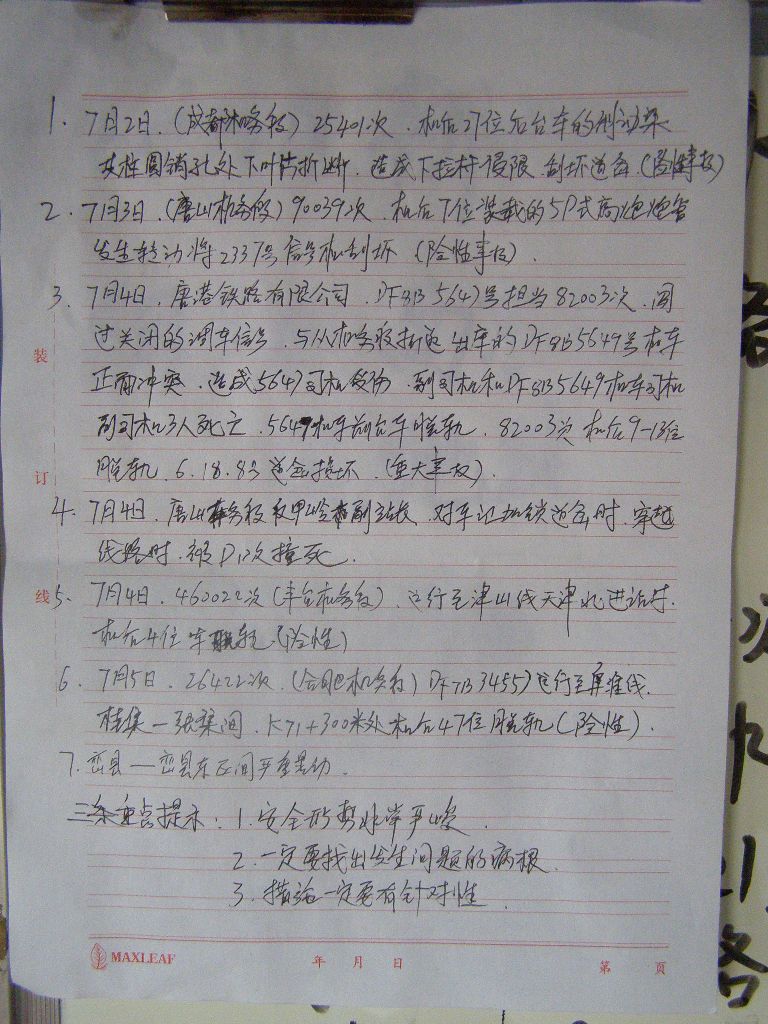 1. 7月2日.(成都机务段) 25401次.机后27位后台车的制动梁
支柱圆销孔处下叶片折断.造成下拉杆侵限.刮坏道岔.(险性事故)
2. 7月3日.(唐山机务段) 90039次.机后7位装载的59式高炮炮管
发生转动将2337号信号机刮坏 (险性事故).
3. 7月4日.唐港铁路有限公司.DF8B 5647号担当82003次.闯
过关闭的调车信号.与从机务段折返出库的DF8B5649号机车
装
正面冲突.造成5647司机受伤.副司机和DF8B5649机车司机
副司机3人死亡.5649机车前台车脱轨.82003次机后9-13位
脱轨.6.18.8号道岔损坏.(重大事故).
订
4. 7月4日.唐山务段 副站长.对车 加锁道岔时.穿越
线路时.被D12次撞死.
线
5. 7月4日.46002次(丰台机务段).运行至津山线天津北进站时.
机后4位车脱轨.(险性)
6. 7月5日.26422次.(合肥机务段) DF7B3455)运行至阜淮线.
桂集一张集间.K71+300米处机后47位脱轨(险性).
7. 滦县—滦县东区间严重晃动.
三条重点提示: 1.安全形势非常严峻.
2.一定要找出发生问题的病根.
3.措施一定要有针对性.
MAXLEAF 年 月 日 第 页